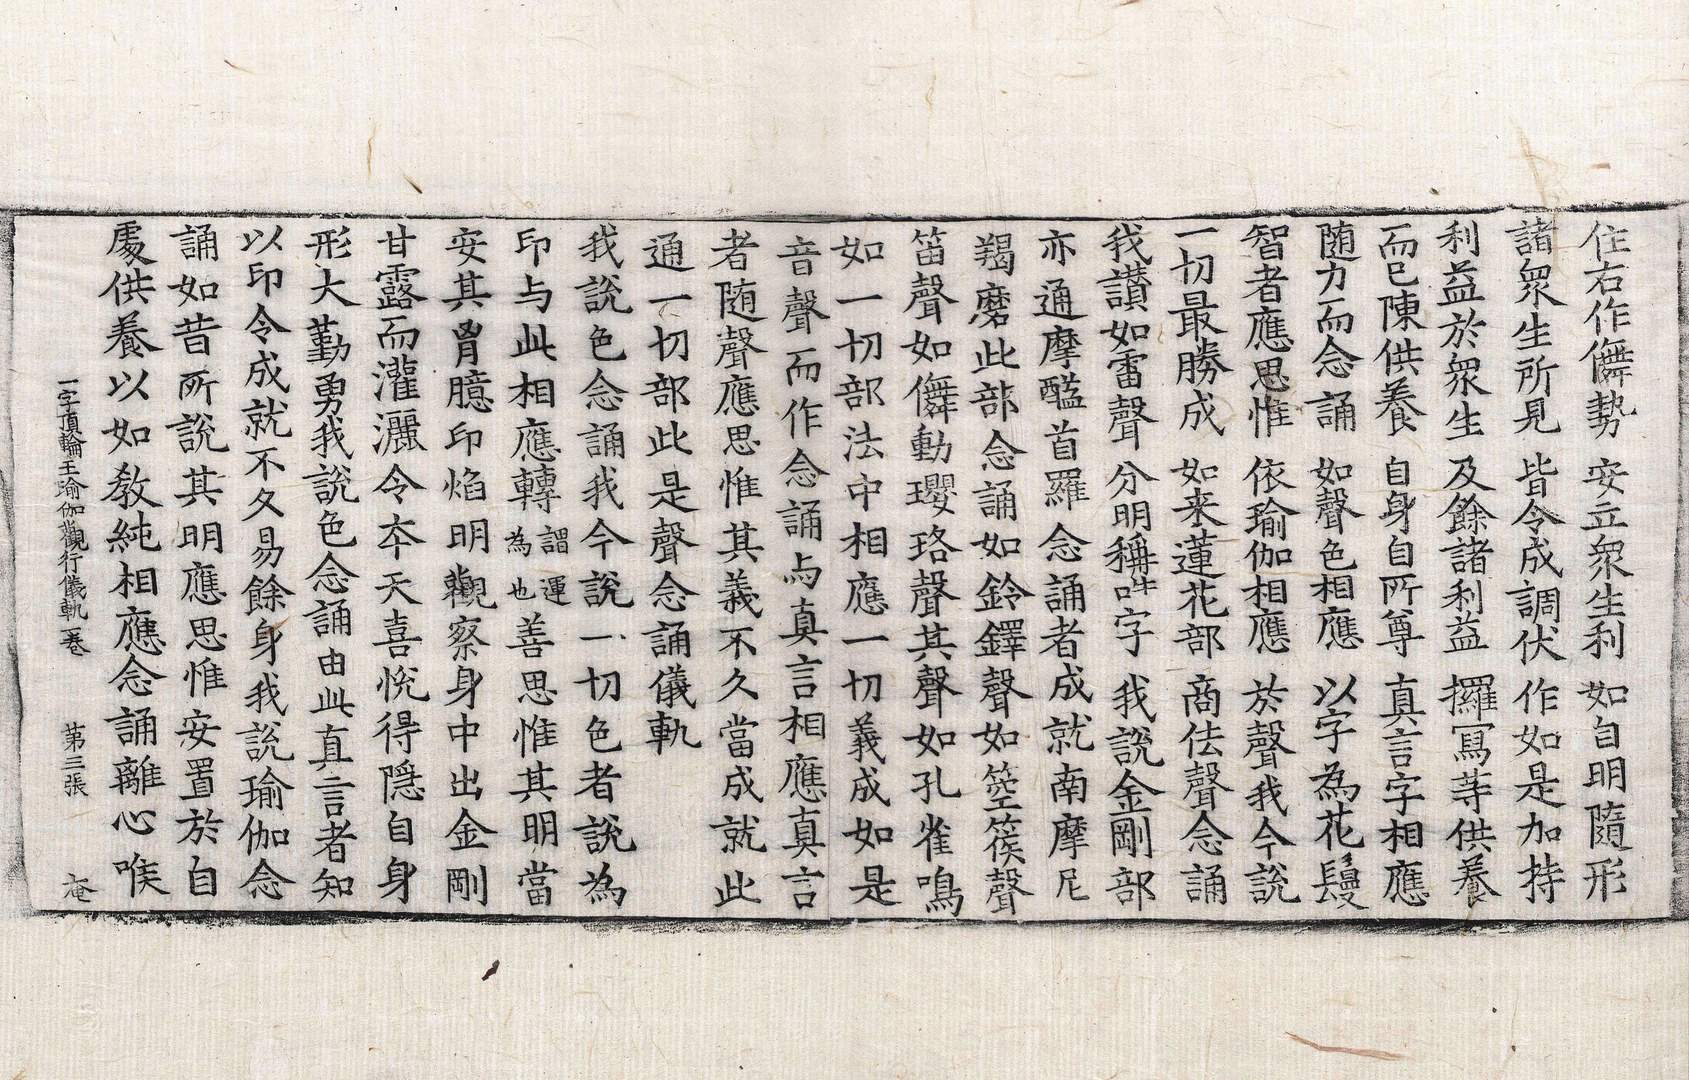 住右作儛勢　安立衆生利　如自明隨形
諸衆生所見　皆令成調伏　作如是加持
利益於衆生　及餘諸利益　攞冩䓁供養
而巳陳供養　自身自所尊　真言字相應
随力而念誦　如聲色相應　以字為花鬘
智者應思惟　依瑜伽相應　於聲我今說
一切最勝成　如来蓮花部　商佉聲念誦
我讃如雷聲　分明稱吽字　我說金剛部
亦通摩醯首羅　念誦者成就南摩尼
羯磨此部念誦如鈴鐸聲如箜篌聲
笛聲如儛動瓔珞聲其聲如孔雀鳴
如一切部法中相應一切義成如是
音聲而作念誦与真言相應真言
者随聲應思惟其義不久當成就此
通一切部此是聲念誦儀軌
我說色念誦我今說一切色者說為
印与此相應轉謂運為也善思惟其明當
安其胷臆印焰明觀察身中出金剛
甘露而灌灑令夲天喜悅得隠自身
形大勤勇我說色念誦由此真言者知
以印令成就不久易餘身我說瑜伽念
誦如昔所說其明應思惟安置於自
處供養以如教純相應念誦離心喉
一字頂輪王瑜伽觀行儀軌一卷　第三張　庵